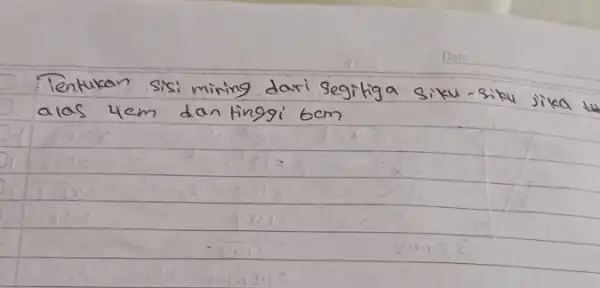 Date
Tentukan sisi miring dari segitiga siku-siku jika
alas 4cm dan tinggi 6cm